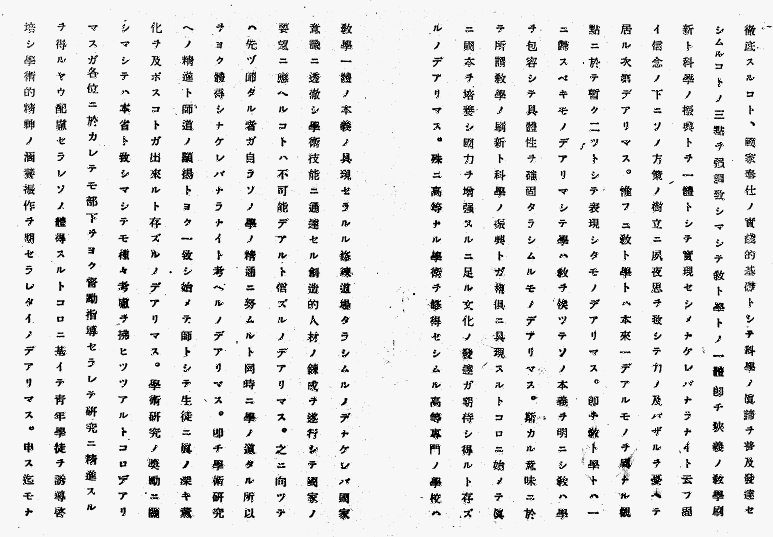 徹底スルコト、國家奉仕ノ實踐的基礎トシテ科學ノ眞諦ヲ普及發達セ
シムルコトノ三點ヲ强調致シマシテ敎ト學トノ一體卽チ狹義ノ敎學刷
新ト科學ノ振興トヲ一體トシテ實現セシメナケレバナラナイト云フ固
イ信念ノ下ニソノ方策ノ樹立ニ夙夜思ヲ致シテ力ノ及バザルヲ憂ヘテ
居ル次第デアリマス。惟フニ敎ト學トハ本來一デアルモノヲ單ナル觀
點ニ於テ暫ク二ツトシテ表現シタモノデアリマス。卽チ敎ト學トハ一
ニ歸スベキモノデアリマシテ學ハ敎ヲ俟ツテソノ本義ヲ明ニシ敎ハ學
ヲ包容シテ具體性ヲ確固タラシムルモノデアリマス。斯カル意味ニ於
テ所謂敎學ノ刷新ト科學ノ振興トガ相俱ニ具現スルトコロニ始メテ眞
ニ國本ヲ培養シ國力ヲ增强スルニ足ル文化ノ發達ガ期待シ得ルト存ズ
ルノデアリマス。殊ニ高等ナル學術ヲ修得セシムル高等專門ノ學校ハ
敎學一體ノ本義ノ具現セラルル修練道場タラシムルノデナケレバ國家
意識ニ透徹シ學術技能ニ通達セル創造的人材ノ鍊成ヲ遂行シテ國家ノ
要望ニ應ヘルコトハ不可能デアルト信ズルノデアリマス。之ニ向ツテ
ハ先ヅ師タル者ガ自ラソノ學ノ精通ニ努ムルト同時ニ學ノ道タル所以
ヲヨク體得シナケレバナラナイト考ヘルノデアリマス。卽チ學術硏究
ヘノ精進ト師道ノ顯揚トヨク一致シ始メテ師トシテ生徒ニ眞ノ深キ薰
化ヲ及ボスコトガ出來ルト存ズルノデアリマス。學術硏究ノ奬勵ニ關
シマシテハ本省ト致シマシテモ種々考慮ヲ拂ヒツツアルトコロデアリ
マスガ各位ニ於カレテモ部下ヲヨク督勵指導セラレテ硏究ニ精進スル
ヲ得ルヤウ配慮セラレソノ體得スルトコロニ基イテ靑年學徒ヲ誘導啓
培シ學術的精神ノ涵養振作ヲ期セラレタイノデアリマス。申ス迄モナ